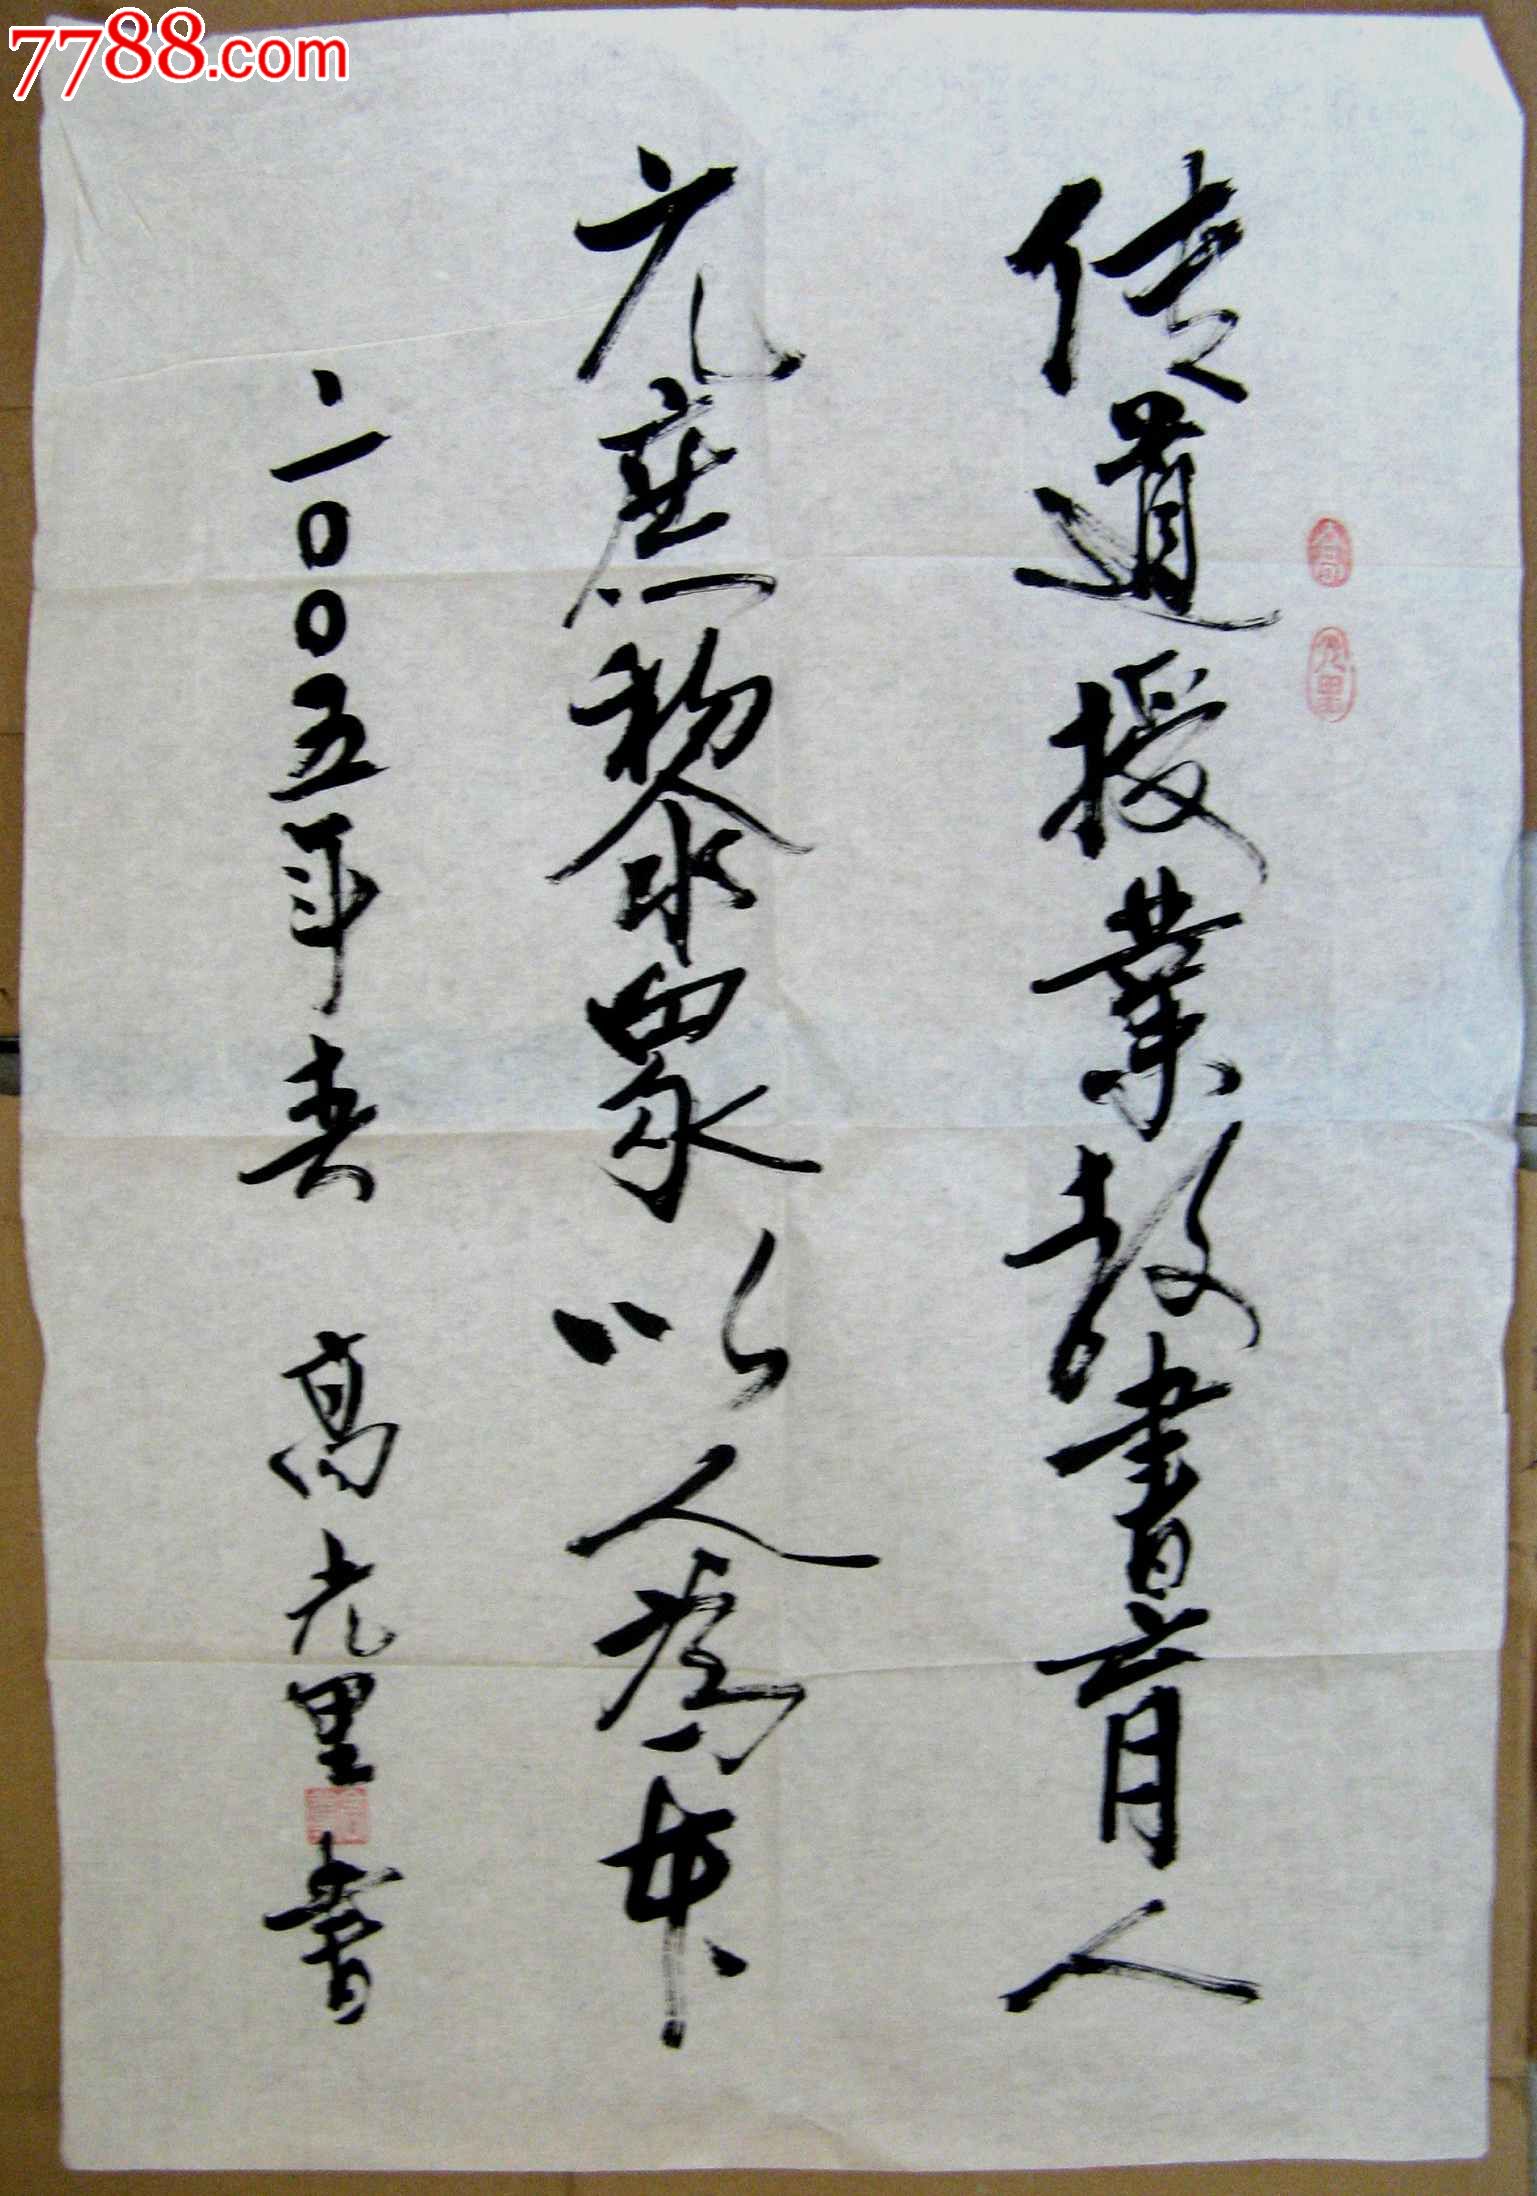 传道授業教書育人
元庶黎眾以人為本
二〇〇五年春 高光里書
7788.com